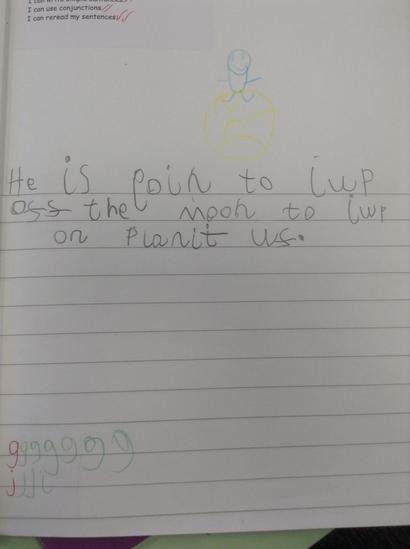 I can use conjunctions.
I can reread my sentences.
He is poin to iwp
oss the moon to iwp
on Planit us.
ggggggg
jjjj